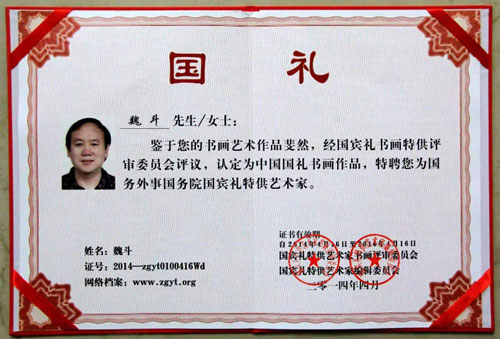 国 礼
魏 斗 先生/女士:
鉴于您的书画艺术作品斐然，经国宾礼书画特供评
审委员会评议，认定为中国国礼书画作品，特聘您为国
务外事国务院国宾礼特供艺术家。
姓名: 魏斗
证号: 2014—zgyt0100416Wd
网络档案: www.zgyt.org
证书有效期
自2014年4月16日至2016年4月16日
国宾礼特供艺术家书画评审委员会
国宾礼特供艺术家编辑委员会
二零一四年四月